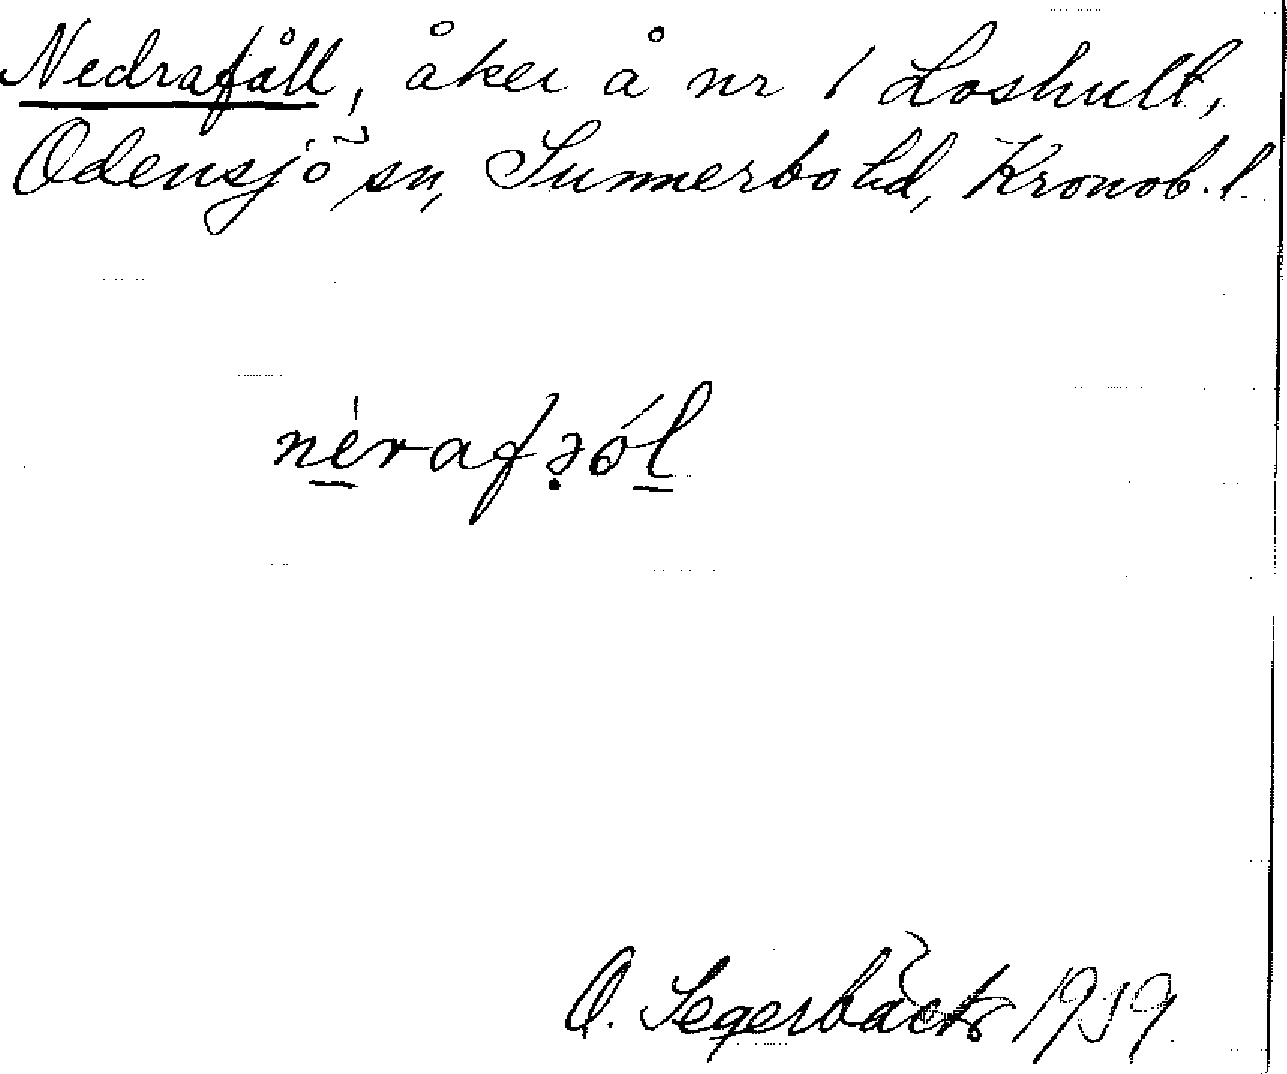 Nedrafåll, åker å nr 1 Loshult,
Odensjö sn, Sunnerbo hd, Kronob. l.
nèrafəól
O. Segerbäck 1939